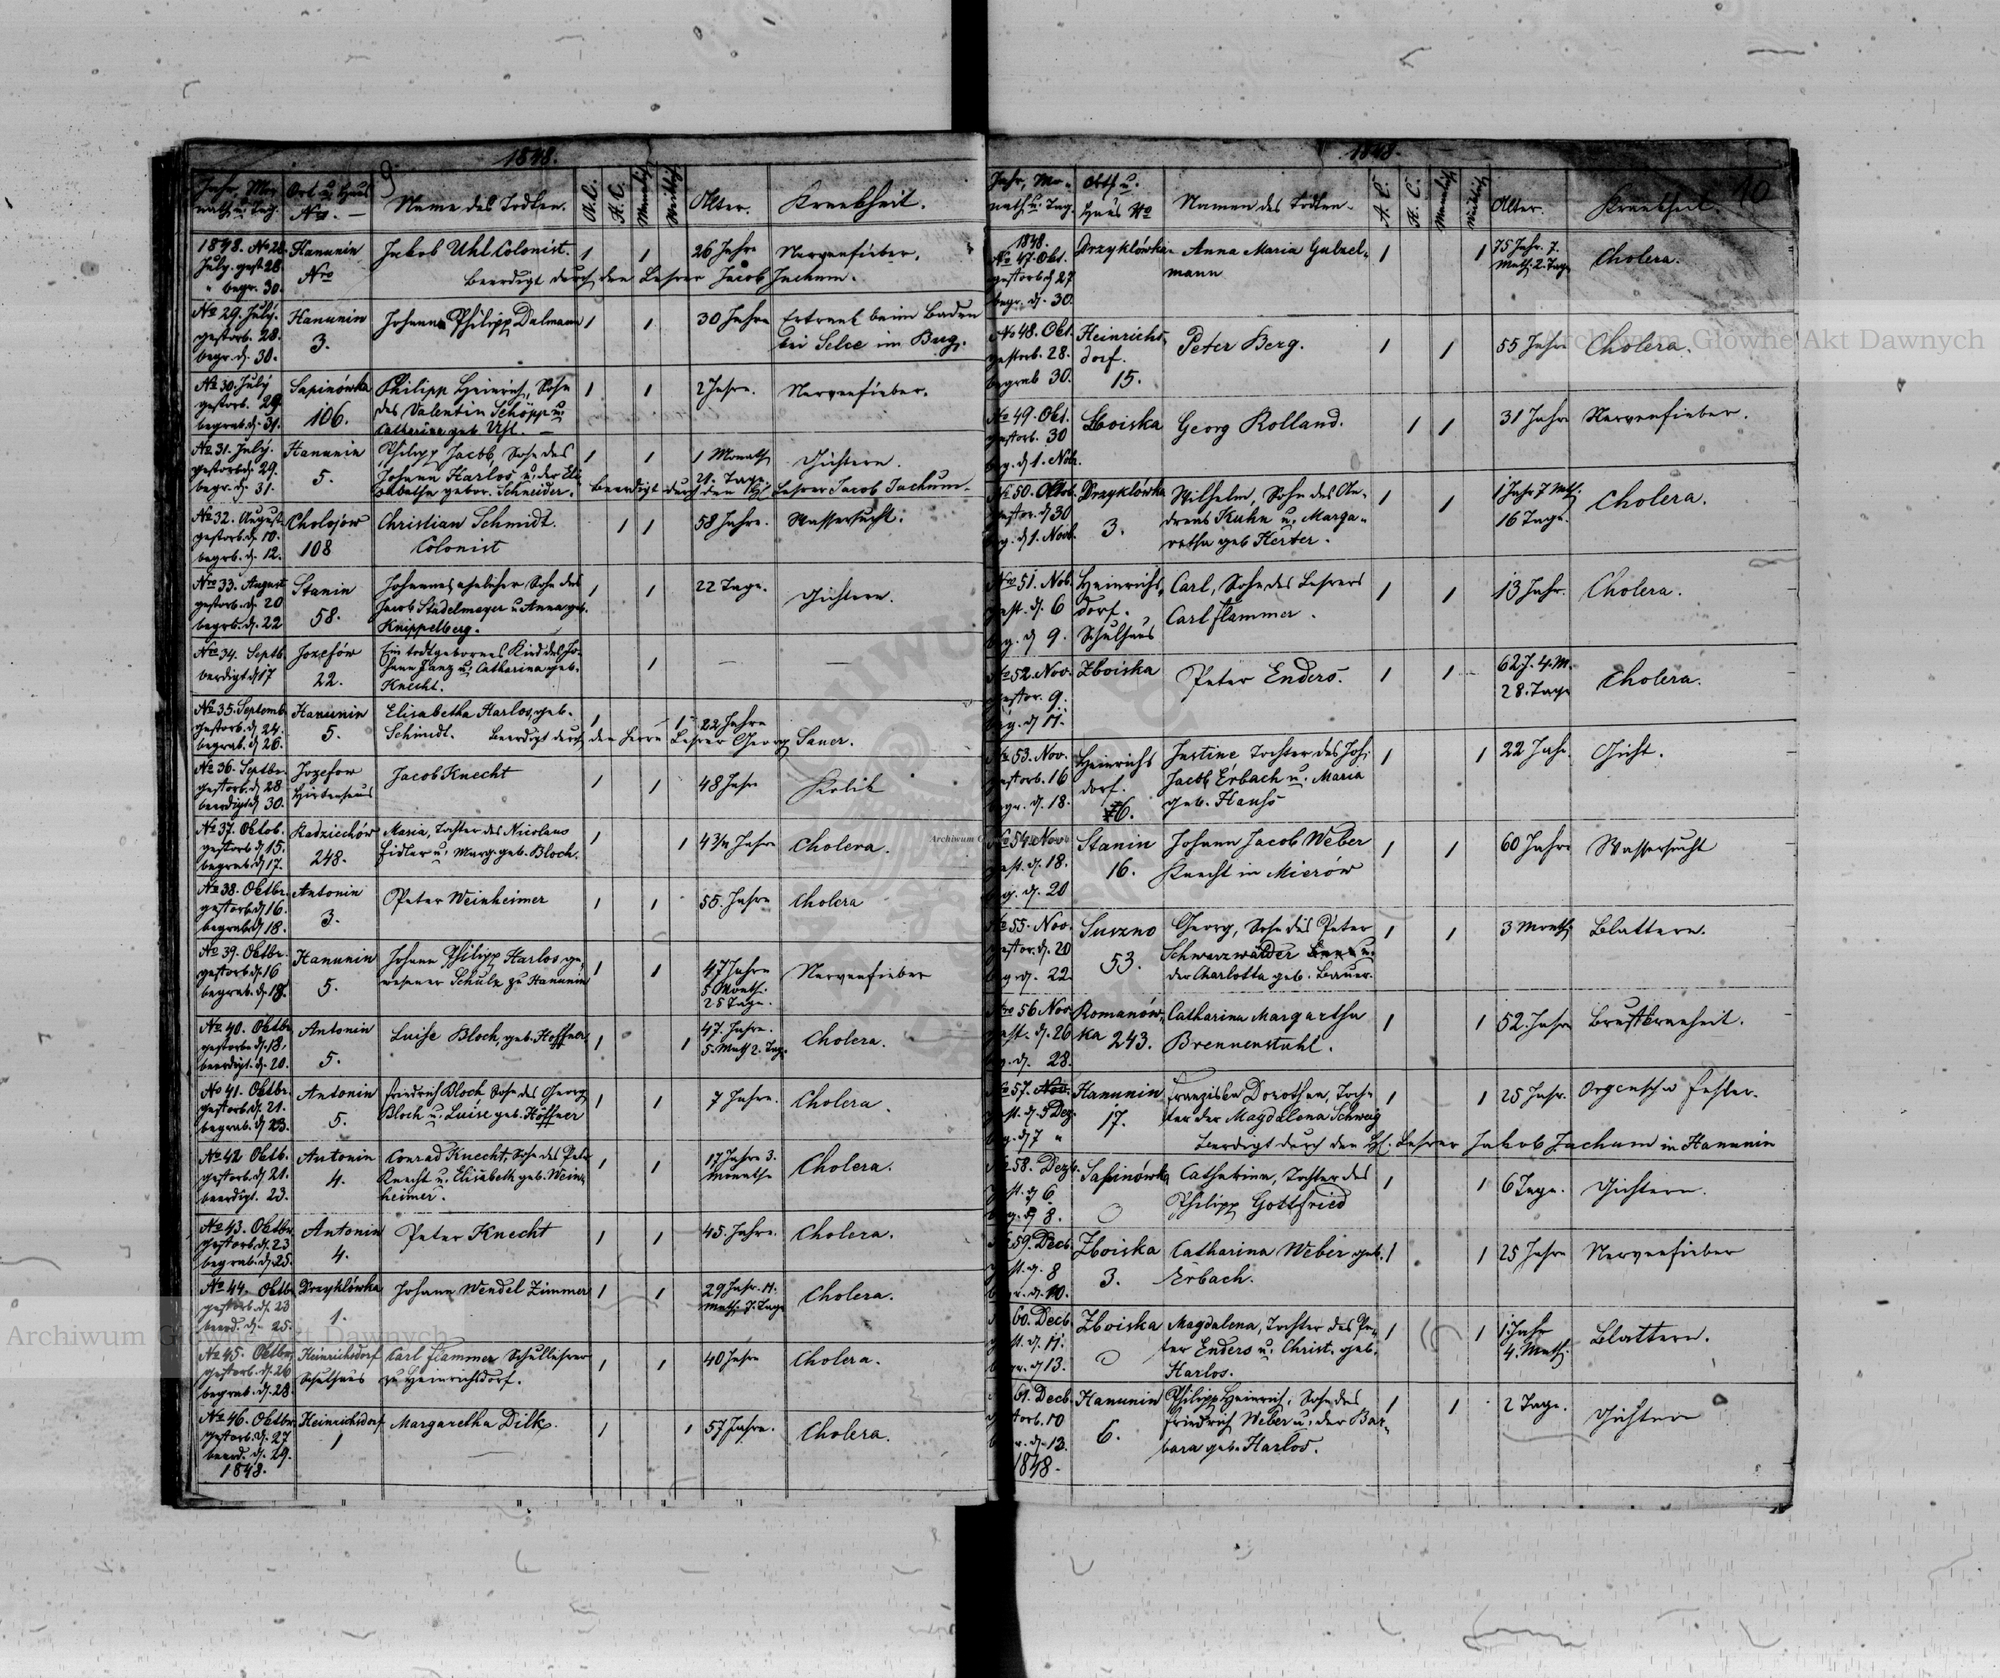 1848.
9
Jahr, Mo-
nath u. Tag.
Ort u. Haus
No. —
Name des Todten.
A. C.
H. C.
Männlich
Weiblich
Alter.
Krankheit.
1848. No 28.
July. gest. 28.
" begr. 30.
Hanunin
Nro
Jakob Uhl Colonist.
1
1
26 Jahre
Nervenfieber.
Beerdigt durch den Lehrer Jacob Jachum.
No 29. July.
gestorb. 28.
begr. d. 30.
Hanunin
3.
Johann Philipp Dalmann
1
1
30 Jahre
Ertrank beim Baden
bei Selce im Bug.
No 30. July
gestorb. 29
begrab. d. 31.
Sapinówka
106.
Philipp Heinrich, Sohn
des Valentin Schöpp u.
Catharina geb. Uhl.
1
1
2 Jahre.
Nervenfieber.
No 31. July.
gestorb. d. 29.
begr. d. 31.
Hanunin
5.
Philipp Jacob, Sohn des
Johann Harlos u. der Eli-
sabetha gebor. Schneider.
1
1
1 Monath
21. Tage.
Gichtern.
Beerdigt durch den H. Lehrer Jacob Jachum.
No 32. August
gestorb. d. 10.
begrb. d. 12.
Cholojow
108
Christian Schmidt.
Colonist
1
1
58 Jahre.
Wassersucht.
Nro 33. August
gestorb. d. 20
begrb. d. 22
Stanin
58.
Johannes, ehelicher Sohn des
Jacob Stadelmeyer u. Anna geb.
Knippelberg.
1
1
22 Tage.
Gichtern.
Nro 34. Septb.
berdigt d. 17
Jozefów
22.
Ein todtgebornes Kind des Jo-
hann Janz u. Catharina geb.
Knecht.
1
—
—
No 35. Septemb.
gestorb. d. 24.
begrab. d. 26.
Hanunin
5.
Elisabetha Harlos, geb.
Schmidt.
1
1
22 Jahre
Beerdigt durch den Herrn Lehrer Georg Sauer.
No 36. Septbr.
gestorb. d. 28
beerdigt d. 30.
Jozefow
Hirtenhaus
Jacob Knecht
1
1
48 Jahr
Kolik
No 37. Oktob.
gestorb. d. 15.
begrab. d. 17.
Radziechów
248.
Maria, Tochter des Nicolaus
Fidler u. Marg. geb. Bloch.
1
1
4 3/4 Jahre
Cholera.
No 38. Oktbr.
gestorb. d. 16.
begrab. d. 18.
Antonin
3.
Peter Weinheimer
1
1
55. Jahre
Cholera
No 39. Oktbr.
gestorb. d. 16
begrab. d. 18.
Hanunin
5.
Johann Philipp Harlos, ge-
wesener Schulz zu Hanunin
1
1
47 Jahre
5 Month.
25 Tage.
Nervenfieber
No 40. Oktbr.
gestorbn d. 18.
beerdigt. d. 20.
Antonin
5.
Luise Bloch, geb. Höffner
1
1
47. Jahre.
5. Mnth 2. Tag.
Cholera.
No 41. Oktbr.
gestorb. d. 21.
begrab. d. 23.
Antonin
5.
Friedrich Bloch, Sohn des Georg
Bloch u. Luise geb. Höffner
1
1
7 Jahre.
Cholera.
No 42 Oktb.
gestorb. d. 21.
beerdigt. 23.
Antonin
4.
Conrad Knecht, Sohn des Peter
Knecht u. Elisabeth geb. Wein-
heimer.
1
1
17 Jahre 3.
Monathe
Cholera.
No 43. Oktbr
gestorb. d. 23
begrab. d. 25.
Antonin
4.
Peter Knecht
1
1
45. Jahre.
Cholera.
No 44. Oktbr
gestorb. d. 23
beerd. d. 25.
Drzyklówka
1.
Johann Wendel Zimmer
1
1
29 Jahr. 11.
Mnth. 7. Tage
Cholera.
No 45. Oktbr
gestorb. d. 26
begrab. d. 28.
Heinrichsdorf
Schulhaus
Carl Flammer Schullehrer
zu Heinrichsdorf.
1
1
40 Jahre
Cholera.
No 46. Oktbr
gestorb. d. 27
beerd. d. 29.
1848.
Heinrichsdorf
1
Margaretha Dilk.
1
1
57 Jahre.
Cholera.
1848.
10
Jahr, Mo-
nath u. Tag.
Orth u.
Haus No
Namen des Todten.
A. C.
H. C.
Männlich
Weiblich
Alter.
Krankheit.
1848.
No 47. Okt.
gestorb. d. 27
begr. d. 30.
Drzyklówka
Anna Maria Gulzel-
mann
1
1
75 Jahr. 7.
Mnth. 2. Tage
Cholera.
No 48. Okt.
gestorb. 28.
begrab 30.
Heinrichs-
dorf.
15.
Peter Berg.
1
1
55 Jahre
Cholera.
No 49. Okt.
gestorb. 30
beg. d. 1. Nobr.
Zboiska
Georg Rolland.
1
1
31 Jahre
Nervenfieber.
No 50. Oktob.
gestor. d. 30
beg. d. 1. Novb.
Drzyklówka
3.
Wilhelm, Sohn des An-
dreas Kuhn u. Marga-
retha geb Kerter.
1
1
1 Jahr 7 Mth.
16 Tage.
Cholera.
Nro 51. Nob.
gest. d. 6
beg. d. 9.
Heinrichs-
dorf.
Schulhaus
Carl, Sohn des Lehrers
Carl Flammer.
1
1
13 Jahr.
Cholera.
No 52. Nov.
gestor. 9.
beg. d. 11.
Zboiska
Peter Enders.
1
1
62 J. 4. M.
28. Tage
Cholera.
No 53. Nov.
gestorb. 16
begr. d. 18.
Heinrichs
dorf.
6.
Justine, Tochter des Joh.
Jacob Erbach u. Maria
geb. Hauss
1
1
22 Jahr.
Gicht.
No 54. Nov.
gest. d. 18.
beg. d. 20
Stanin
16.
Johann Jacob Weber
Knecht in Mierów
1
1
60 Jahre
Wassersucht
No 55. Nov.
gestor. d. 20
begr. d. 22
Suszno
53.
Georg, Sohn des Peter
Schwarzwälder u.
der Charlotta geb. Bauer.
1
1
3 Month.
Blattern.
Nro 56 Nov
gest. d. 26
beg. d. 28.
Romanów-
ka 243.
Catharina Margartha
Brennenstuhl.
1
1
52. Jahre
Brustkrankheit.
No 57. Nov.
gest. d. 5 Dez.
beg. d. 7 "
Hanunin
17.
Franziska Dorothea, Toch-
ter der Magdalena Schweig
1
1
25 Jahr.
Organische Fehler.
Beerdigt durch den H. Lehrer Jakob Jachum in Hanunin
No 58. Dezb.
gest. d. 6
beg. d. 8.
Sapinówka
Catharina, Tochter des
Philipp Gottfried
1
1
6 Tage.
Gichtern.
No 59. Decb.
gest. d. 8
begr. d. 10.
Zboiska
3.
Catharina Weber geb.
Erbach.
1
1
25 Jahre
Nervenfieber
60. Decb.
gest. d. 11.
begr. d. 13.
Zboiska
Magdalena, Tochter des Pe-
ter Enders u. Christ. geb.
Harlos.
1
1
1. Jahr
4. Mnth.
Blattern.
61. Decb.
gestorb. 10
begr. d. 13.
1848.
Hanunin
6.
Philipp Heinrich, Sohn des
Friedrich Weber u. der Bar-
bara geb. Harlos.
1
1
2 Tage.
Gichtern
Archiwum Główne Akt Dawnych
Archiwum Główne Akt Dawnych